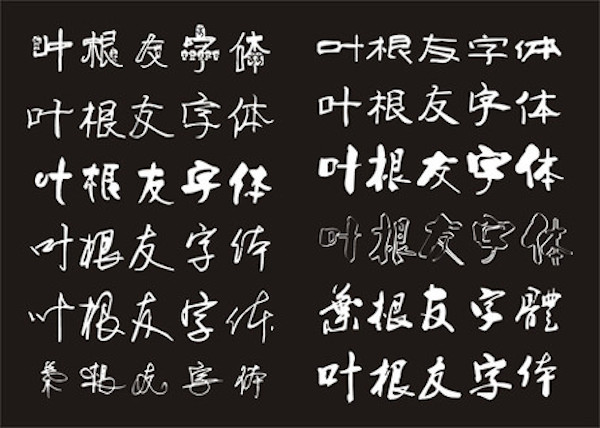 叶根友字体
叶根友字体
叶根友字体
叶根友字体
叶根友字体
葉根友字体
叶根友字体
叶根友字体
叶根友字体
叶根友字体
葉根友字體
叶根友字体